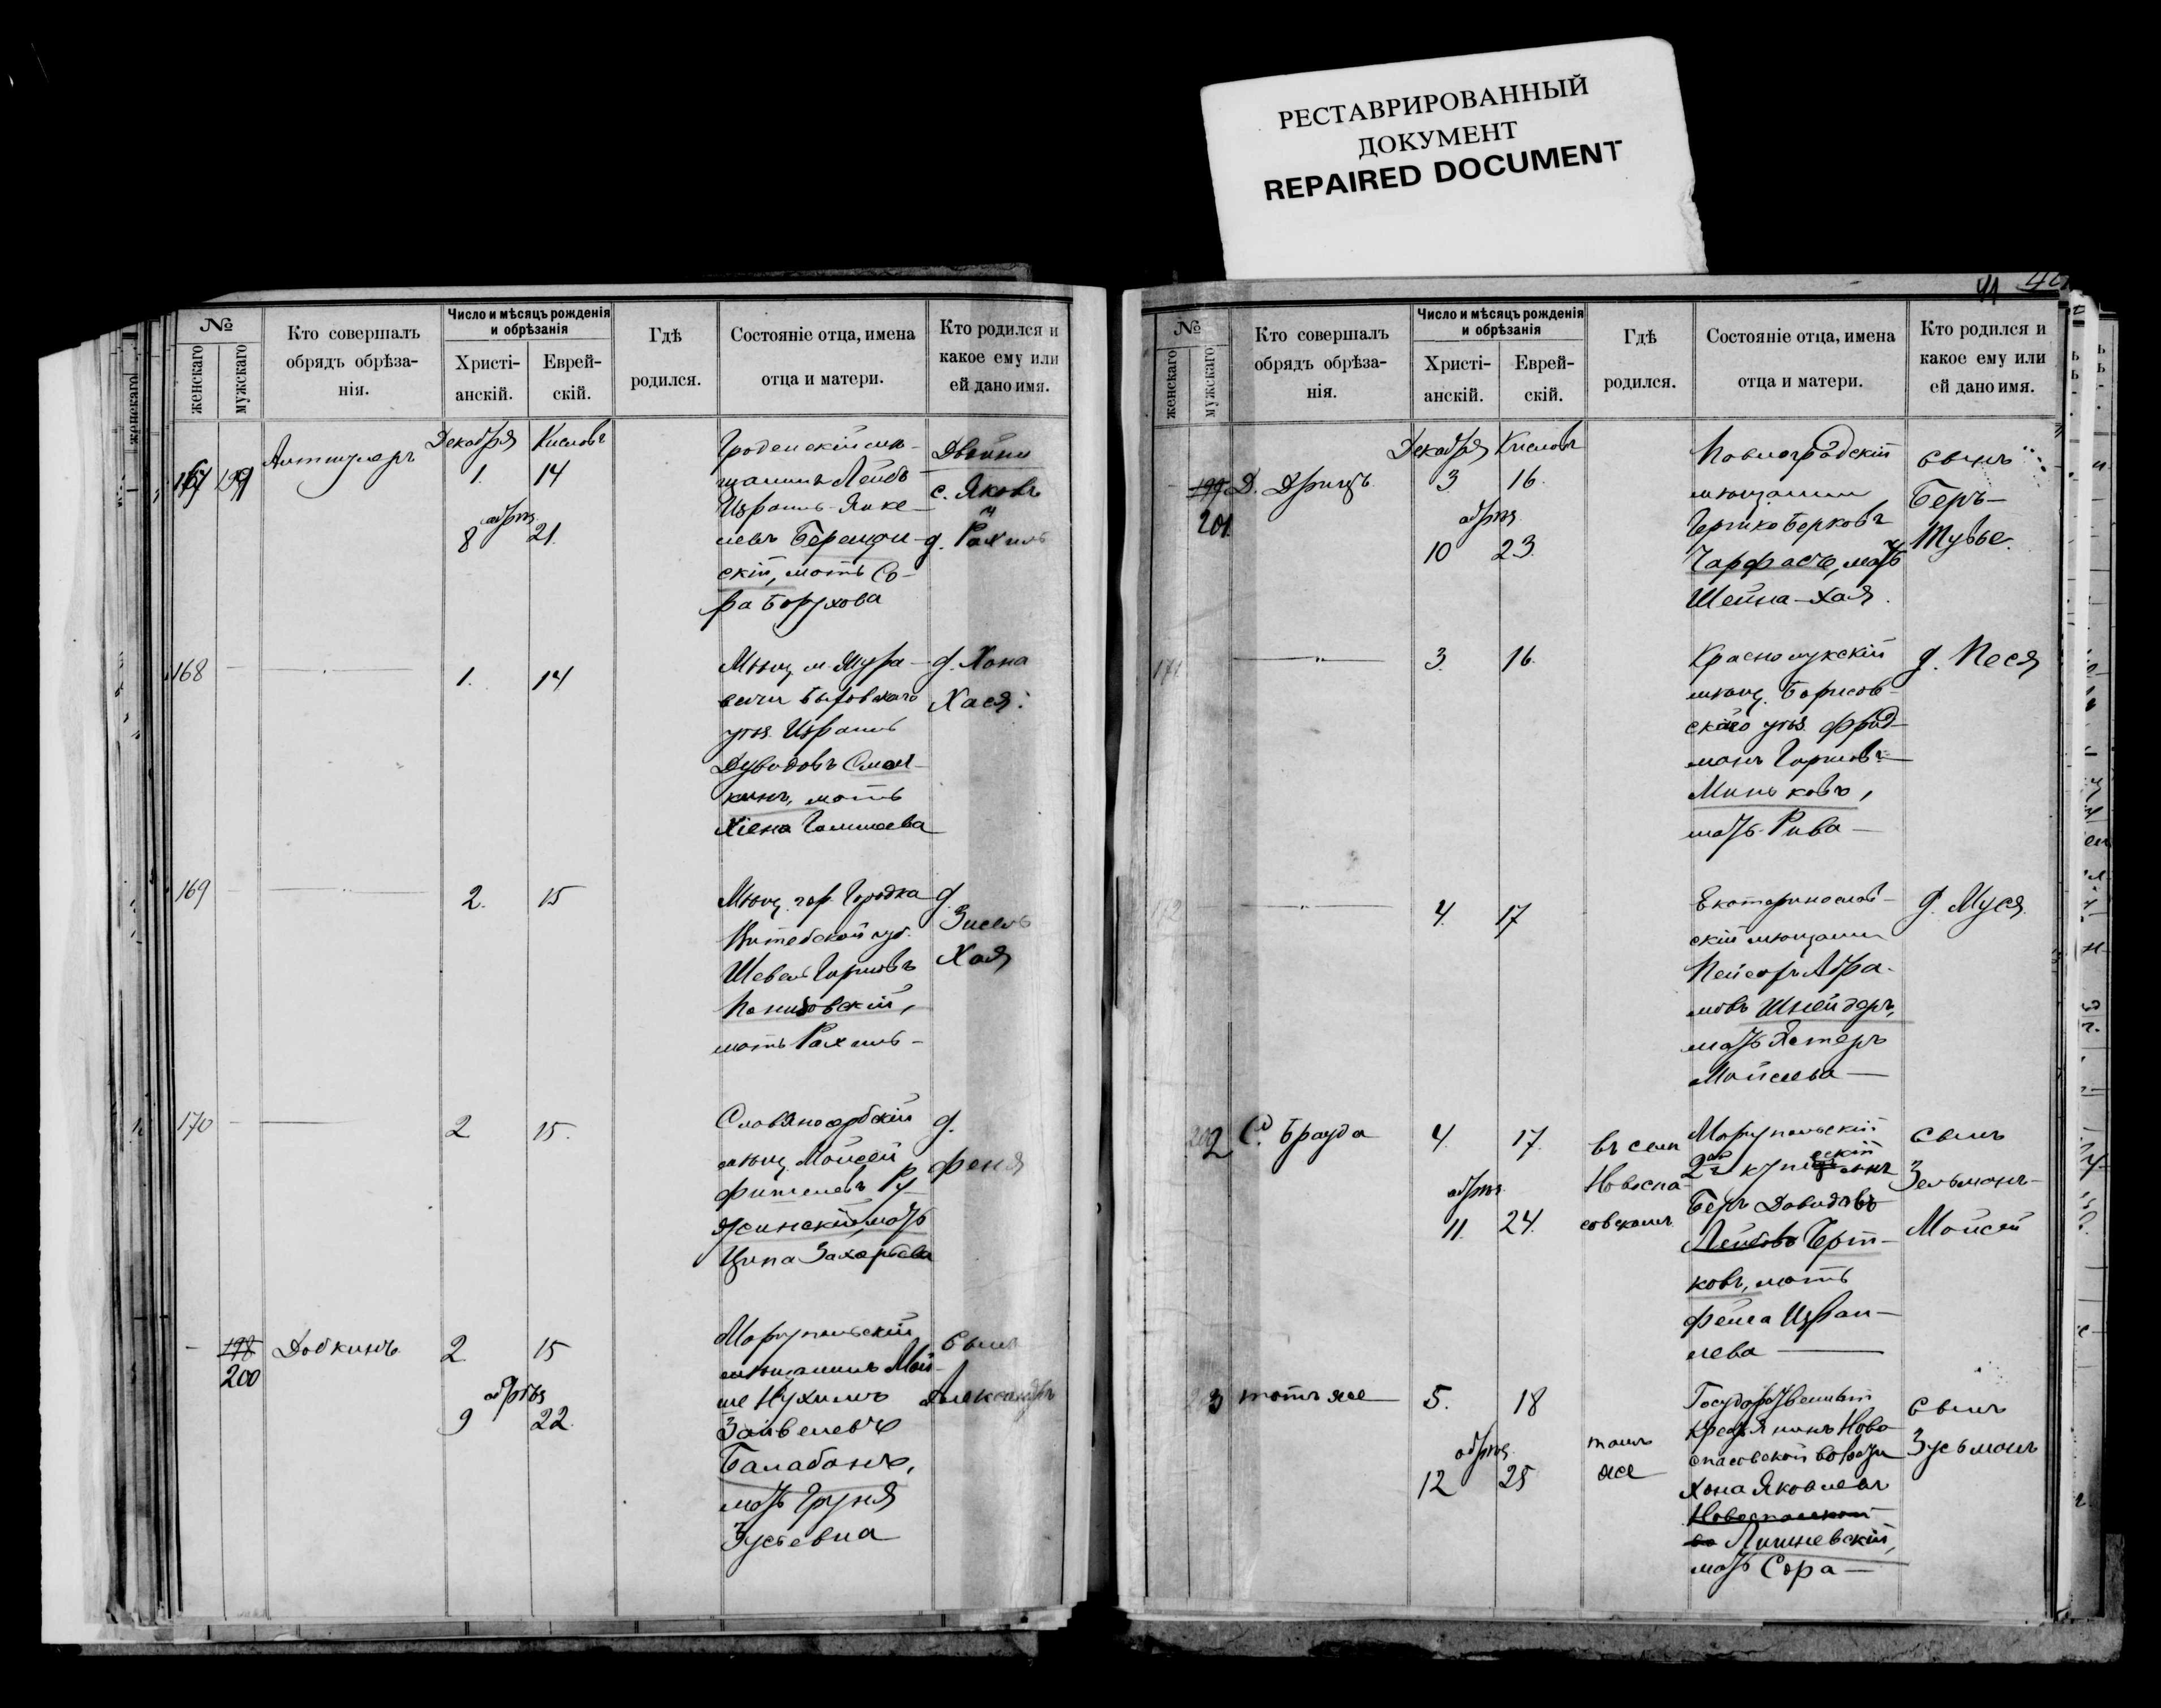 РЕСТАВРИРОВАННЫЙ
ДОКУМЕНТ
REPAIRED DOCUMENT
№
женскаго
мужскаго
Кто совершалъ
обрядъ обрѣза-
нія.
Число и мѣсяцъ рожденія
и обрѣзанія
Христі-
анскій.
Еврей-
скій.
Гдѣ
родился.
Состояніе отца, имена
отца и матери.
Кто родился и
какое ему или
ей дано имя.
167
Декабря Кислевъ
1. 14
обрѣз.
8 21.
Гроденскій мѣ-
щанинъ Лейбъ
Израиль Янке-
левъ Берещин-
скій, мать Со-
ра Борухова
Двойни
с. Яковъ
и
д. Рахиль
168
1. 14
Мѣщ. м. Мура-
Израиль
кинъ, мать
д. Хана
Хася.
169
2. 15
Мѣщ. гор. Городка
Витебской губ.
Шевель Гиршовъ
мать Рахиль
д.
Зисель
Хая
170
2 15.
Славяносербскій
мѣщ. Мойсей
мать
Ципа Захарьева
д.
Феня
198
200
Добкинъ
2 15
обрѣз
9 22.
Маріупольскій
мѣщанинъ Мой-
ше Нухимъ
Зайвелевъ
Балабанъ,
мать Груня
Зусьевна
сынъ
Александръ
41
№
женскаго
мужскаго
Кто совершалъ
обрядъ обрѣза-
нія.
Число и мѣсяцъ рожденія
и обрѣзанія
Христі-
анскій.
Еврей-
скій.
Гдѣ
родился.
Состояніе отца, имена
отца и матери.
Кто родился и
какое ему или
ей дано имя.
199
201
Декабря Кислевъ
3 16.
обрѣз.
10 23.
мѣщанинъ
Гершко Берковъ
мать
Шейна-Хая.
сынъ
Беръ-
Тувье.
171
3. 16.
Краснолукскій
мѣщ. Борисов-
скаго уѣз. Фрид-
манъ Гиршовъ
Миньковъ,
мать Рива
д. Песя
172
4. 17
Екатеринослав-
скій мѣщанинъ
Пейсехъ Абра-
мовъ Шнейдеръ,
мать Эстеръ
Мойсеева
д. Муся
202
С. Брауда
4. 17.
обрѣз.
11. 24.
въ селѣ
Новоспа-
совскомъ
Маріупольскій
Беръ Давидовъ
Лейбовъ Черт-
ковъ, мать
Фейга Израи-
лева
сынъ
Зельманъ-
Мойсей
203
тотъ же
5. 18
обрѣз.
12 25
тамъ
же
Государственный
крестьянинъ Ново-
спасовской волости
Хона Яковлевъ
мать Сора
сынъ
Зусьманъ